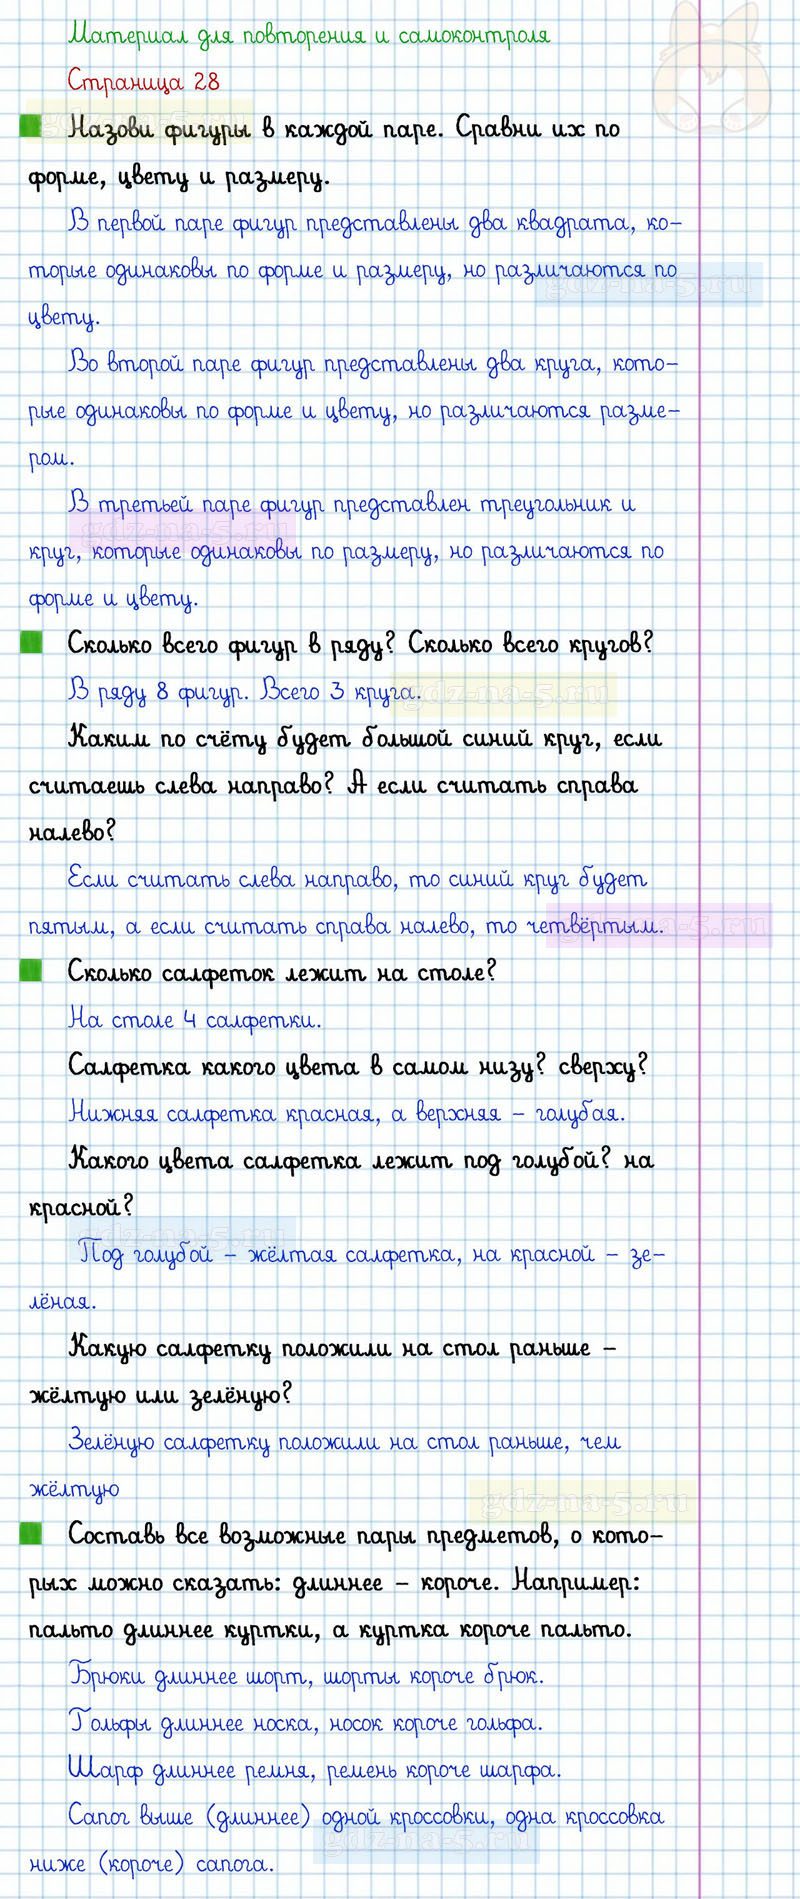 Материал для повторения и самоконтроля
Страница 28
Назови фигуры в каждой паре. Сравни их по
форме, цвету и размеру.
В первой паре фигур представлены два квадрата, ко-
торые одинаковы по форме и размеру, но различаются по
gdz-na-5.ru
цвету.
Во второй паре фигур представлены два круга, кото-
рые одинаковы по форме и цвету, но различаются разме-
ром.
В третьей паре фигур представлен треугольник и
gdz-na-5.ru
круг, которые одинаковы по размеру, но различаются по
форме и цвету.
Сколько всего фигур в ряду? Сколько всего кругов?
В ряду 8 фигур. Всего 3 круга.
gdz-na-5.ru
Каким по счёту будет большой синий круг, если
считаешь слева направо? А если считать справа
налево?
Если считать слева направо, то синий круг будет
пятым, а если считать справа налево, то четвёртым.
gdz-na-5.ru
Сколько салфеток лежит на столе?
На столе 4 салфетки.
Салфетка какого цвета в самом низу? сверху?
Нижняя салфетка красная, а верхняя – голубая.
Какого цвета салфетка лежит под голубой? на
красной?
gdz-na-5.ru
Под голубой – жёлтая салфетка, на красной – зе-
лёная.
Какую салфетку положили на стол раньше –
жёлтую или зелёную?
Зелёную салфетку положили на стол раньше, чем
жёлтую
gdz-na-5.ru
Составь все возможные пары предметов, о кото-
рых можно сказать: длиннее – короче. Например:
пальто длиннее куртки, а куртка короче пальто.
Брюки длиннее шорт, шорты короче брюк.
Гольфы длиннее носка, носок короче гольфа.
Шарф длиннее ремня, ремень короче шарфа.
Сапог выше (длиннее) одной кроссовки, одна кроссовка
gdz-na-5.ru
ниже (короче) сапога.